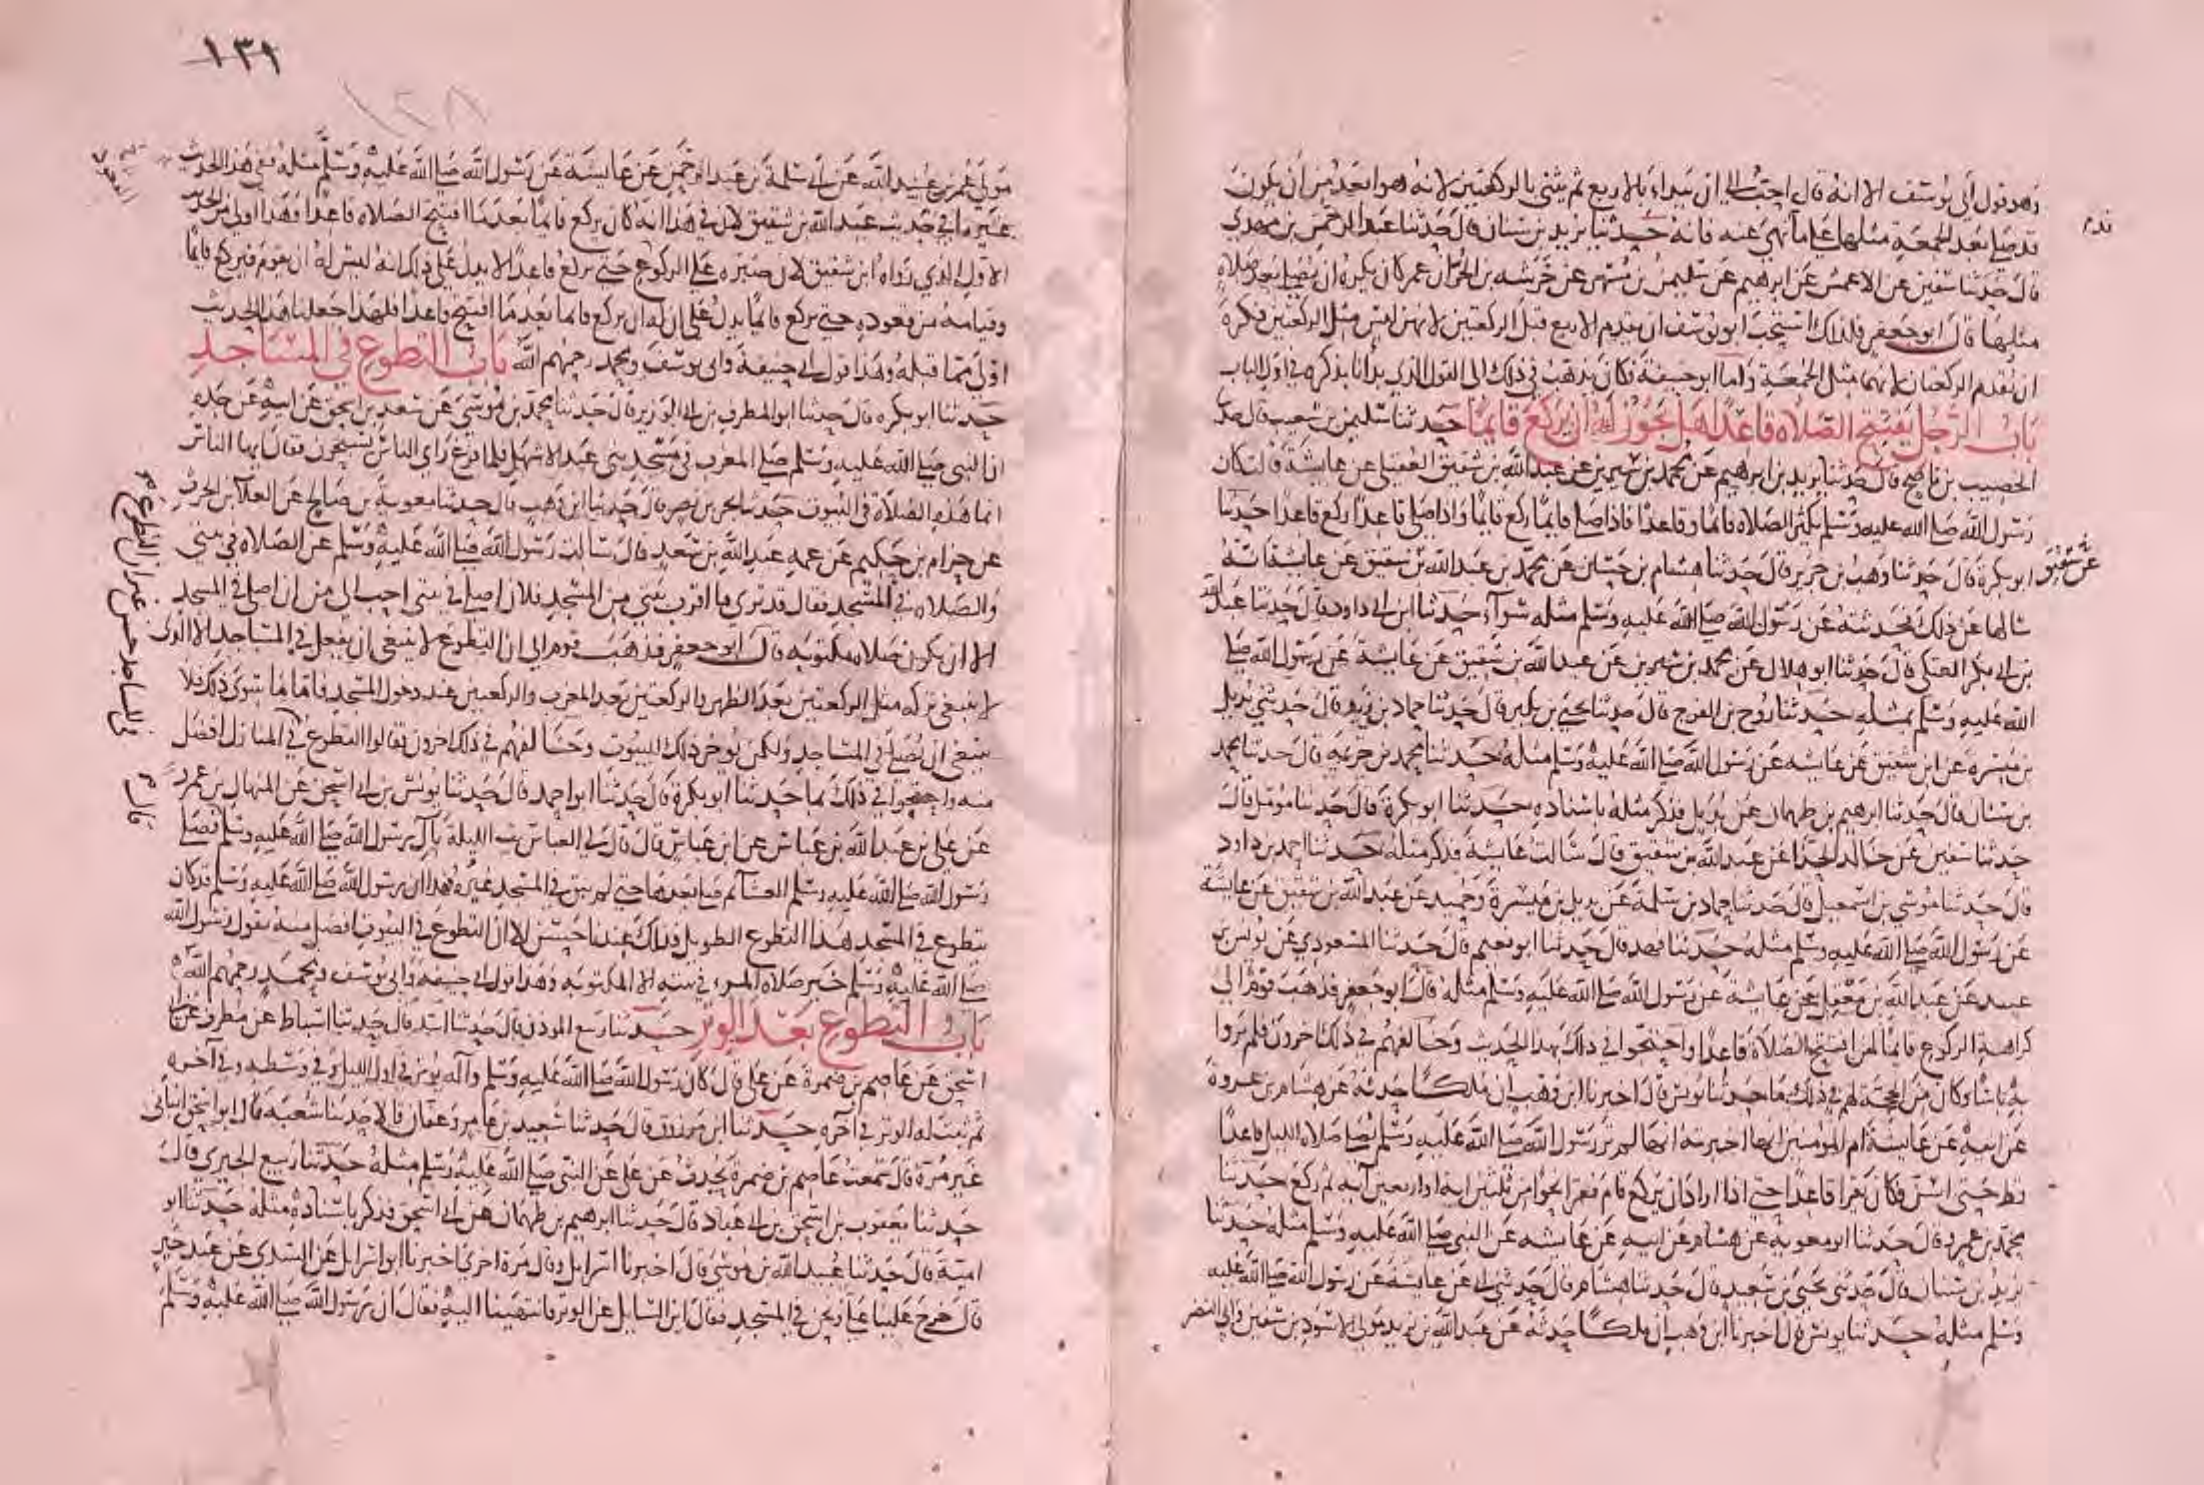 وهو قول أبى يوسف الا انه قال احب الي ان يبداء بالاربع ثم يثني بالركعتين لانه هو ابعد من ان يكون
قد صلي بعد الجمعة مثلها علي ما نهي عنه فانه حدثنا يزيد بن سنان قال حدثنا عبد الرحمن بن مهدي
قال حدثنا سفين عن الاعمش عن ابرهيم عن سليمن بن مسهر عن خرشه بن الحر ان عمر كان يكره ان يصلي بعد صلاه
مثلها قال ابو جعفر فلذلك استحب ابو يوسف ان يقدم الاربع قبل الركعتين لانهن ليس مثل الركعتين فكره
ان يقدم الركعتان لانهما مثل الجمعة واما ابو حنيفة فكان يذهب في ذلك الى القول الذي بدأنا بذكره في اول الباب
باب الرجل يفتتح الصلاه قاعدا هل يجوز له ان يركع قايما حدثنا سليمن بن شعيب قال حدثنا
الخصيب بن ناصح قال حدثنا يزيد بن ابرهيم عن محمد بن سيرين عن عبد الله بن شقيق العقيلي عن عايشة قالت كان
رسول الله صلي الله عليه وسلم يكثر الصلاه قائما وقاعدا فاذا صلي قايما ركع قايما واذا صلي قاعدا ركع قاعدا حدثنا
ابو بكرة قال حدثنا وهب بن جرير قال حدثنا هشام بن حسان عن محمد بن عبد الله بن شقيق عن عايشة انه
سالها عن ذلك فحدثته عن رسول الله صلي الله عليه وسلم مثله سواء حدثنا ابن ابي داود قال حدثنا عبد الله
بن ابي بكر العتكي قال حدثنا ابو هلال عن محمد بن سيرين عن عبد الله بن شقيق عن عايشة عن رسول الله صلي
الله عليه وسلم بمثله حدثنا روح بن الفرج قال حدثنا يحيي بن بكير قال حدثنا حماد بن زيد قال حدثني بديل
بن ميسره عن ابن شقيق عن عايشه عن رسول الله صلي الله عليه وسلم مثله حدثنا محمد بن خزيمه قال حدثنا محمد
بن سنان قال حدثنا ابرهيم بن طهمان عن بديل فذكر مثله باسناده حدثنا ابو بكرة قال حدثنا مومل قال
حدثنا سفين عن خالد الحذا عن عبد الله بن شقيق قال سالت عايشة فذكر مثله حدثنا احمد بن داود
قال حدثنا موسي بن اسمعيل قال حدثنا حماد بن سلمة عن بديل بن ميسرة وحميد عن عبد الله بن شقيق عن عايشة
عن رسول الله صلي الله عليه وسلم مثله حدثنا فهد قال حدثنا ابو نعيم قال حدثنا المسعودي عن يونس بن
عبيد عن عبد الله بن معقل عن عايشة عن رسول الله صلي الله عليه وسلم مثله قال ابو جعفر فذهب قوم الي
كراهة الركوع قايما لمن افتتح الصلاة قاعدا واحتجوا في ذلك بهذا الحديث وخالفهم في ذلك اخرون فلم يروا
به باسا وكان من الحجة لهم في ذلك ما حدثنا يونس قال اخبرنا ابن وهب ان ملكا حدثه عن هشام بن عروة
عن ابيه عن عايشة ام المومنين انها اخبرته انها لم تر رسول الله صلي الله عليه وسلم يصلي صلاه الليل قاعدا
قط حتي اسن فكان يقرا قاعدا حتي اذا اراد ان يركع قام فقرا نحوا من ثلثين ايه او اربعين آيه ثم ركع حدثنا
محمد بن عمرو قال حدثنا ابو معويه عن هشام عن ابيه عن عايشه عن النبي صلي الله عليه وسلم مثله حدثنا
يزيد بن سنان قال حدثني يحيي بن سعيد قال حدثنا هشام قال حدثني ابي عن عايشة عن رسول الله صلي الله عليه
وسلم مثله حدثنا يونس قال اخبرنا ابن وهب ان ملكا حدثه عن عبد الله بن يزيد مولي الاسود بن سفين وابي النضر
عن شقيق
١٣٩
١٢٨
مولي عمر بن عبيد الله عن ابي سلمة بن عبد الرحمن عن عايشة عن رسول الله صلي الله عليه وسلم مثله ففي هذا الحديث
غير ما في حديث عبد الله بن شقيق لان في هذا انه كان يركع قايما بعد ما افتتح الصلاه قاعدا وهذا اولي من الحديث
الاول الذي رواه ابن شقيق لان صبره علي الركوع حتي يركع قاعدا لا يدل علي ذلك انه ليس له ان يقوم فيركع قايما
وقيامه من قعوده حتي يركع قايما يدل علي ان له ان يركع قايما بعد ما افتتح قاعدا فلهذا جعلنا هذا الحديث
اولي مما قبله وهذا قول ابي حنيفة وابى يوسف ومحمد رحمهم الله باب التطوع في المساجد
حدثنا ابو بكره قال حدثنا ابو المطرف بن ابي الوزير قال حدثنا محمد بن موسي عن سعد بن اسحق عن ابيه عن جده
ان النبي صلي الله عليه وسلم صلي المغرب في مسجد بني عبد الاشهل فلما فرغ راي الناس يسبحون فقال يايها الناس
انما هذه الصلاة في البيوت حدثنا بحر بن نصر قال حدثنا ابن وهب قال حدثنا معوية بن صالح عن العلا بن الحرث
عن حزام بن حكيم عن عمه عبد الله بن سعد قال سالت رسول الله صلي الله عليه وسلم عن الصلاه في بيتي
والصلاه في المسجد فقال قد تري ما اقرب بيتي من المسجد فلان اصلي في بيتي احب الي من ان اصلي في المسجد
الا ان يكون صلاة مكتوبه قال ابو جعفر فذهب قوم الى ان التطوع لا ينبغي ان يفعل في المساجد الا الذي
لا ينبغي تركه مثل الركعتين بعد الظهر والركعتين بعد المغرب والركعتين عند دخول المسجد فاما ما سوى ذلك فلا
ينبغي ان يصلي في المساجد ولكن يوخر ذلك للبيوت وخالفهم في ذلك اخرون فقالوا التطوع في المنازل افضل
منه واحتجوا في ذلك بما حدثنا ابو بكرة قال حدثنا ابو احمد قال حدثنا يونس بن ابي اسحق عن المنهال بن عمرو
عن علي بن عبد الله بن عباس عن ابن عباس قال قال لي العباس بت الليلة بآل رسول الله صلي الله عليه وسلم فصلي
رسول الله صلي الله عليه وسلم العشا ثم صلي بعدها حتي لم يبق في المسجد غيره فهذا رسول الله صلي الله عليه وسلم قد كان
يتطوع في المسجد هذا التطوع الطويل فذلك عندنا حسن الا ان التطوع في البيوت افضل منه لقول رسول الله
صلي الله عليه وسلم خير صلاه المرء في بيته الا المكتوبه وهذا قول ابي حنيفه وابي يوسف ومحمد رحمهم الله
باب التطوع بعد الوتر حدثنا ربيع الموذن قال حدثنا اسد قال حدثنا اسباط عن مطرف عن ابي
اسحق عن عاصم بن ضمرة عن علي قال كان رسول الله صلي الله عليه وسلم وآله يوتر في اول الليل وفي وسطه وفي آخره
ثم ثبت له الوتر في آخره حدثنا ابن مرزوق قال حدثنا سعيد بن عامر وعفان قالا حدثنا شعبة قال ابو اسحق انباني
غير مرة قال سمعت عاصم بن ضمرة يحدث عن علي عن النبي صلي الله عليه وسلم مثله حدثنا ربيع الجيزي قال
حدثنا يعقوب بن اسحق بن ابي عباد قال حدثنا ابرهيم بن طهمان عن ابي اسحق فذكر باسناده مثله حدثنا ابو
امية قال حدثنا عبيد الله بن موسي قال اخبرنا اسرايل وقال مرة اخري اخبرنا ابو اسرايل عن السدي عن عبد خير
قال خرج علينا علي ونحن في المسجد فقال اين السايل عن الوتر فانتهينا اليه فقال ان رسول الله صلي الله عليه وسلم
في المساجد حسن غير ان التطوع